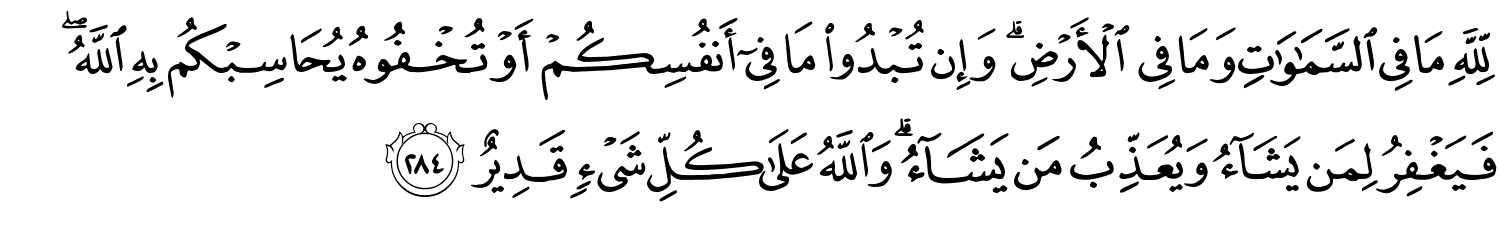 لِّلَّهِ مَا فِي السَّمَٰوَٰتِ وَمَا فِي الْأَرْضِ ۗ وَإِن تُبْدُوا۟ مَا فِىٓ أَنفُسِكُمْ أَوْ تُخْفُوهُ يُحَاسِبْكُم بِهِ اللَّهُ ۖ
فَيَغْفِرُ لِمَن يَشَآءُ وَيُعَذِّبُ مَن يَشَآءُ ۗ وَاللَّهُ عَلَىٰ كُلِّ شَىْءٍ قَدِيرٌ ٢٨٤